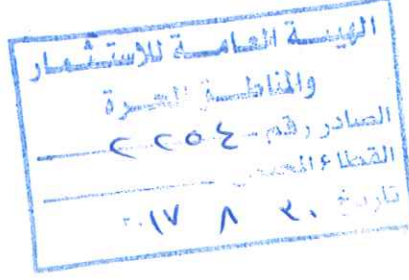 الهيئة العامة للاستثمار
والمناطق الحرة
الصادر رقم ٢٢٥٤
القطاع
تاريخ ٨ ٢٠١٧